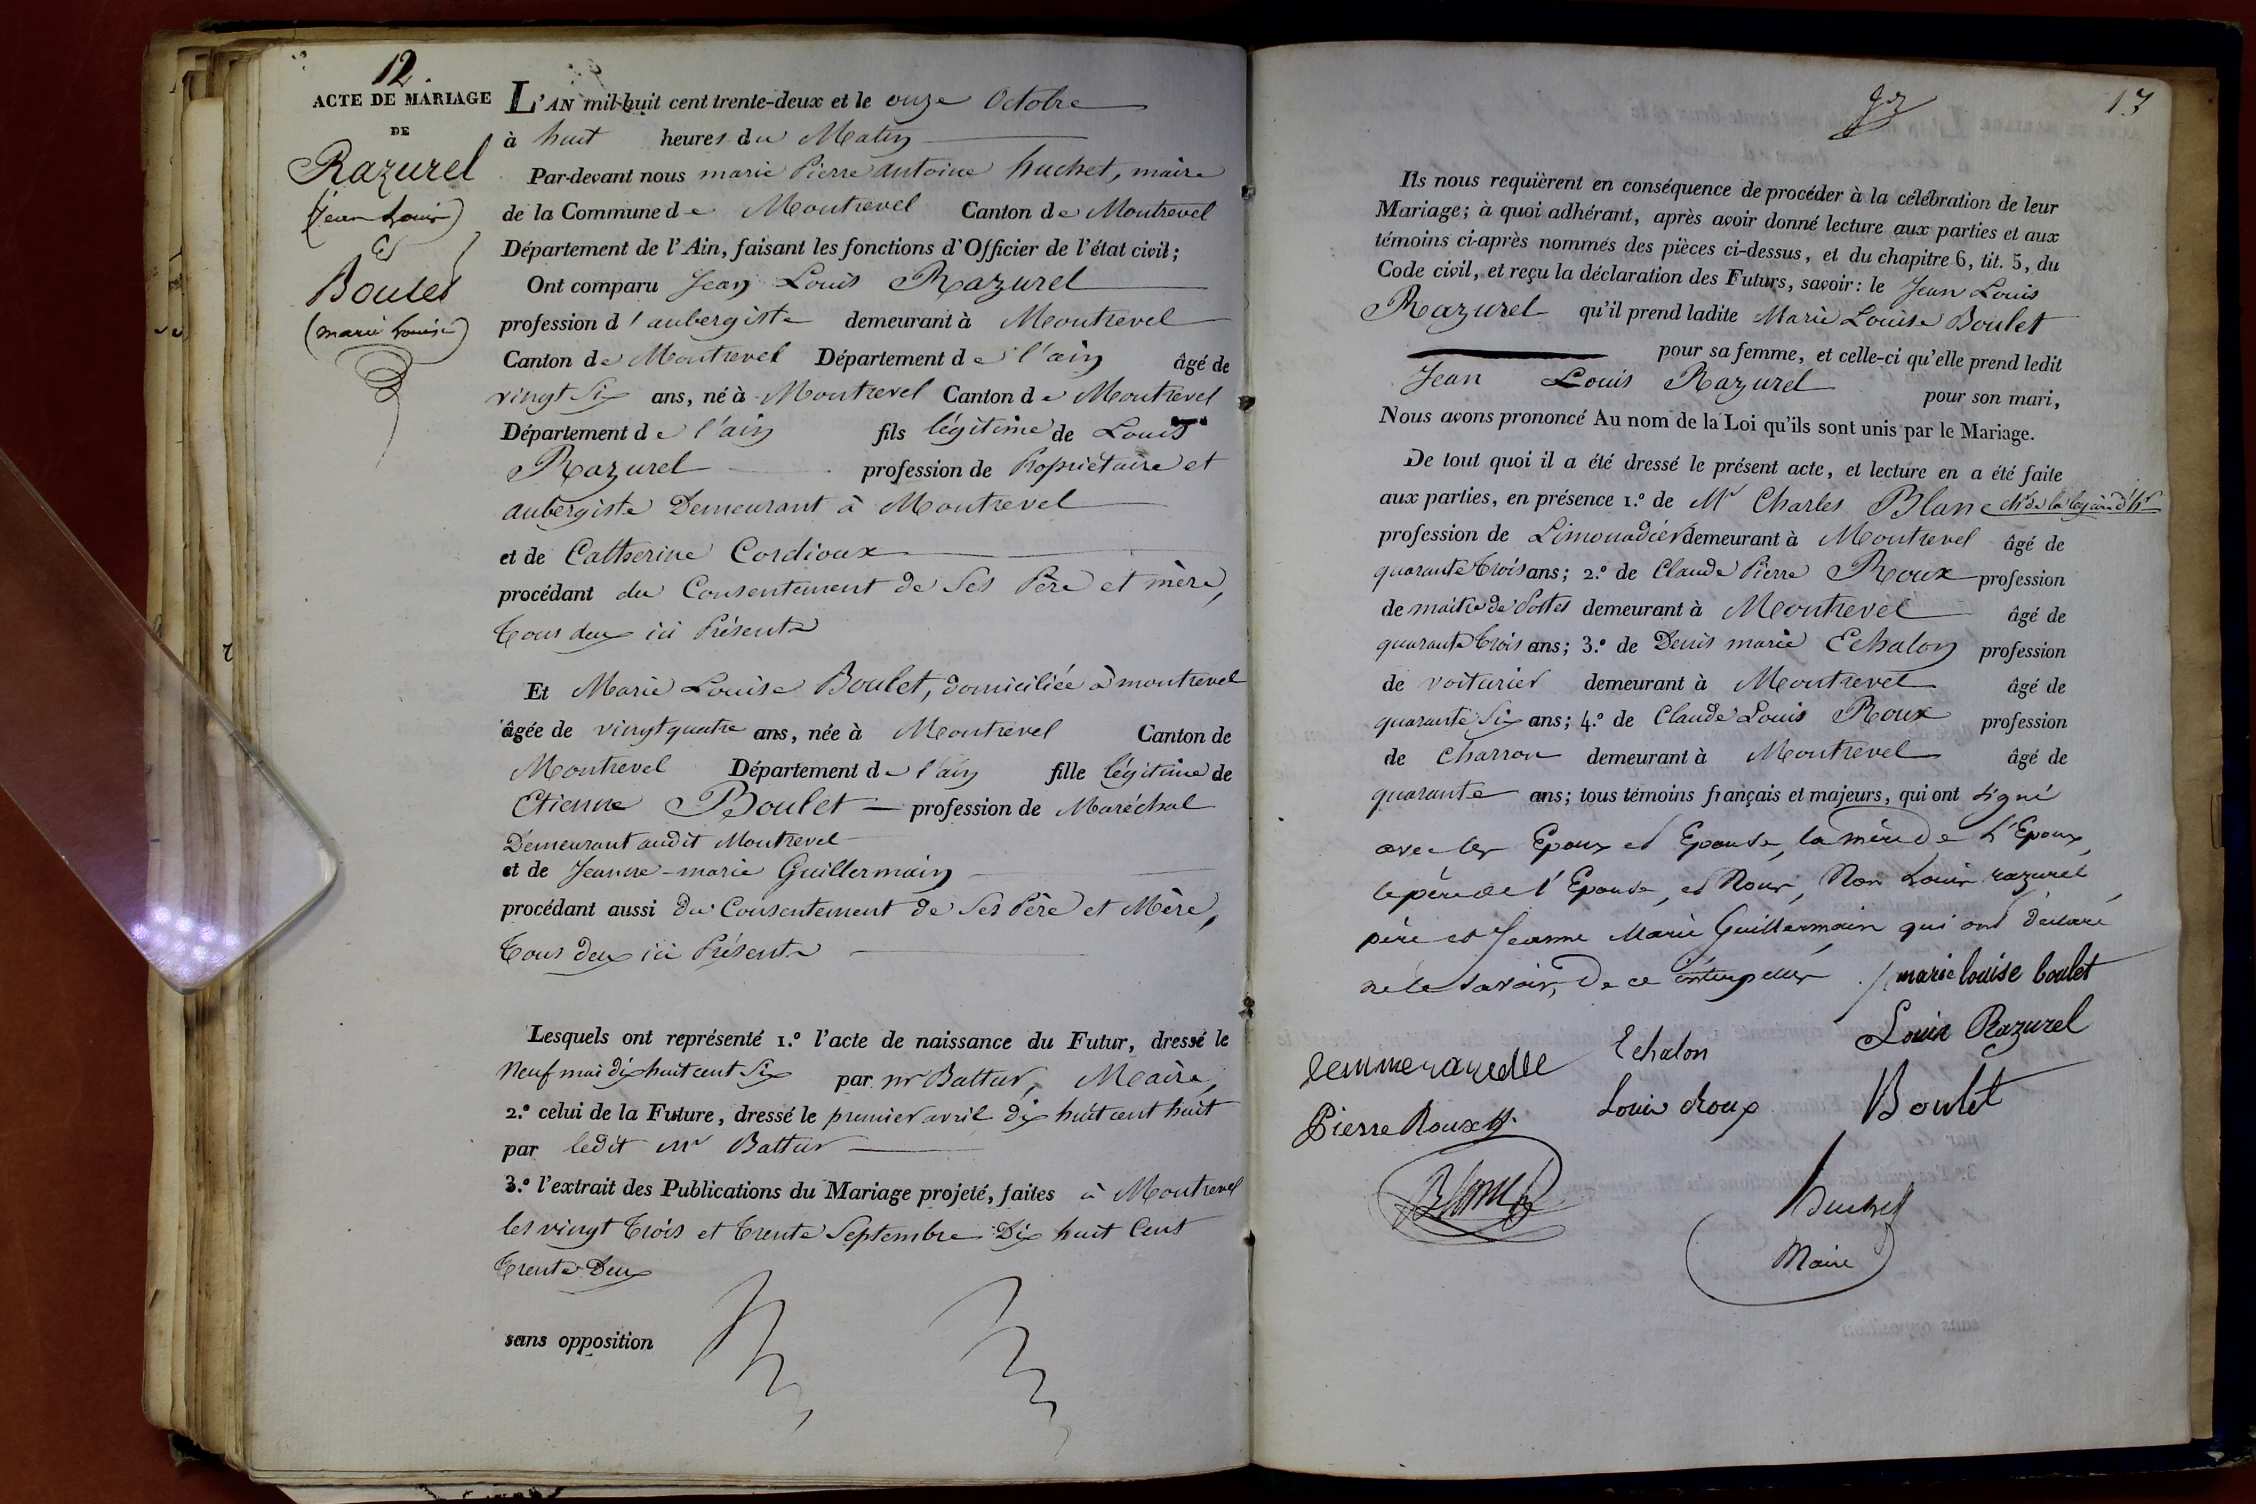 12.
ACTE DE MARIAGE
DE
Razurel
(Jean Louis)
Et
Boulet
(marie Louise)
L'AN mil-huit cent trente-deux et le onze Octobre
à huit heures du Matin
Par-devant nous marie Pierre antoine huchet, maire
de la Commune de Montrevel Canton de Montrevel
Département de l'Ain, faisant les fonctions d'Officier de l'état civil;
Ont comparu Jean Louis Razurel
profession d'aubergiste demeurant à Montrevel
Canton de Montrevel Département de l'ain âgé de
vingt Six ans, né à Montrevel Canton de Montrevel
Département de l'ain fils légitime de Louis
Razurel profession de Propriétaire et
aubergiste Demeurant à Montrevel
et de Catherine Cordioux
procédant du Consentement de Ses Père et mère,
Tous deux ici Présents
Et Marie Louise Boulet, domiciliée à montrevel
âgée de vingt quatre ans, née à Montrevel Canton de
Montrevel Département de l'ain fille légitime de
Etienne Boulet profession de Maréchal
Demeurant audit Montrevel
et de Jeanne-marie Guillermain
procédant aussi du Consentement de Ses Père et Mère,
Tous deux ici Présents
Lesquels ont représenté 1.º l'acte de naissance du Futur, dressé le
Neuf mai dix huit cent Six par mr Battur, Maire,
2.º celui de la Future, dressé le premier avril dix huit cent huit
par ledit Mr Battur
3.º l'extrait des Publications du Mariage projeté, faites à Montrevel
les vingt Trois et Trente Septembre Dix huit Cent
Trente Deux
sans opposition
13
Ils nous requièrent en conséquence de procéder à la célébration de leur
Mariage; à quoi adhérant, après avoir donné lecture aux parties et aux
témoins ci-après nommés des pièces ci-dessus, et du chapitre 6, tit. 5, du
Code civil, et reçu la déclaration des Futurs, savoir: le Jean Louis
Razurel qu'il prend ladite Marie Louise Boulet
pour sa femme, et celle-ci qu'elle prend ledit
Jean Louis Razurel pour son mari,
Nous avons prononcé Au nom de la Loi qu'ils sont unis par le Mariage.
De tout quoi il a été dressé le présent acte, et lecture en a été faite
aux parties, en présence 1.º de Mr Charles Blanc chr de la légion d'hr
profession de Limonadier demeurant à Montrevel âgé de
quarante Trois ans; 2.º de Claude Pierre Roux profession
de maitre de Postes demeurant à Montrevel âgé de
quarante Trois ans; 3.º de Denis marie Echalon profession
de voiturier demeurant à Montrevel âgé de
quarante Six ans; 4.º de Claude Louis Roux profession
de Charron demeurant à Montrevel âgé de
quarante ans; tous témoins français et majeurs, qui ont signé
avec les Epoux et Epouse, la mère de L'Epoux,
le père de l'Epouse, et Nous, Non Louis razurel
père et Jeanne Marie Guillermain qui ont déclaré
ne le savoir, De ce interpellés
marie louise boulet
Louis Razurel
Echalon
Pierre Roux
Louis Roux
Boulet
Blanc
huchet
Maire